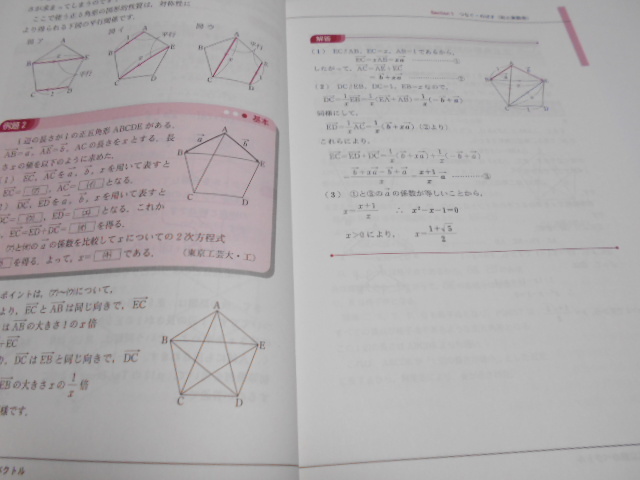 さが求まってしまうのです.
ここで使う正5角形の図形的性質は，対称性に
より得られる下図の平行関係です.
図ア
図イ
図ウ
平行
平行
平行
例題2
基本
1辺の長さが1の正五角形ABCDEがある.
AB=a, AE=b, ACの長さをxとする. 長
さxの値を以下のように求めた.
(1) EC, ACをa, b, xを用いて表すと
EC=(ア), AC=(イ) となる.
(2) DC, EDをa, b, xを用いて表すと
DC=(ウ), ED=(エ) となる. これか
EC=ED+DC=(オ) を得る.
(ア)と(オ)のaの係数を比較してxについての2次方程式
を得る. よって, x=(キ)である.
(東京工芸大・工)
ポイントは, (ア)～(ウ)について,
より, ECとABは同じ向きで, EC
はABの大きさ1のx倍
+EC
り, DCはEBと同じ向きで, DC
EBの大きさxの1/x倍
様です.
A
B
E
C
D
クトル
解答
(1) EC∥AB, EC=x, AB=1であるから,
EC=xAB=xa ①
したがって, AC=AE+EC
=b+xa ②
(2) DC∥EB, DC=1, EB=xなので,
DC=1/x EB=1/x(EA+AB)=1/x(-b+a)
同様にして,
ED=1/x AC=1/x(b+xa) (②より)
これらにより,
EC=ED+DC=1/x(b+xa)+1/x(-b+a)
=(b+xa-b+a)/x=(x+1)/x a ③
(3) ①と③のaの係数が等しいことから,
x=(x+1)/x ∴ x²-x-1=0
x>0により, x=(1+√5)/2